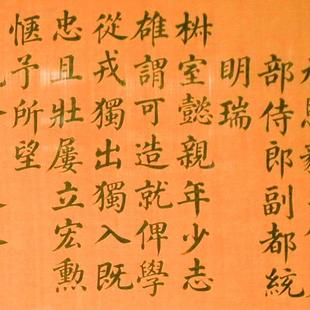 恩毅
部侍郎副都統
明瑞
椒室懿親年少志
雄謂可造就俾學
從戎獨出獨入既
忠且壯屢立宏勲
愜予所望